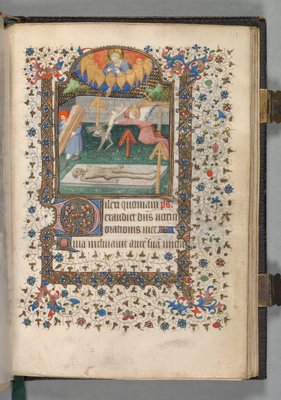 Dilexi quoniam ps.
exaudiet dñs uocem
orationis mee
Quia inclinauit aurē suā michi